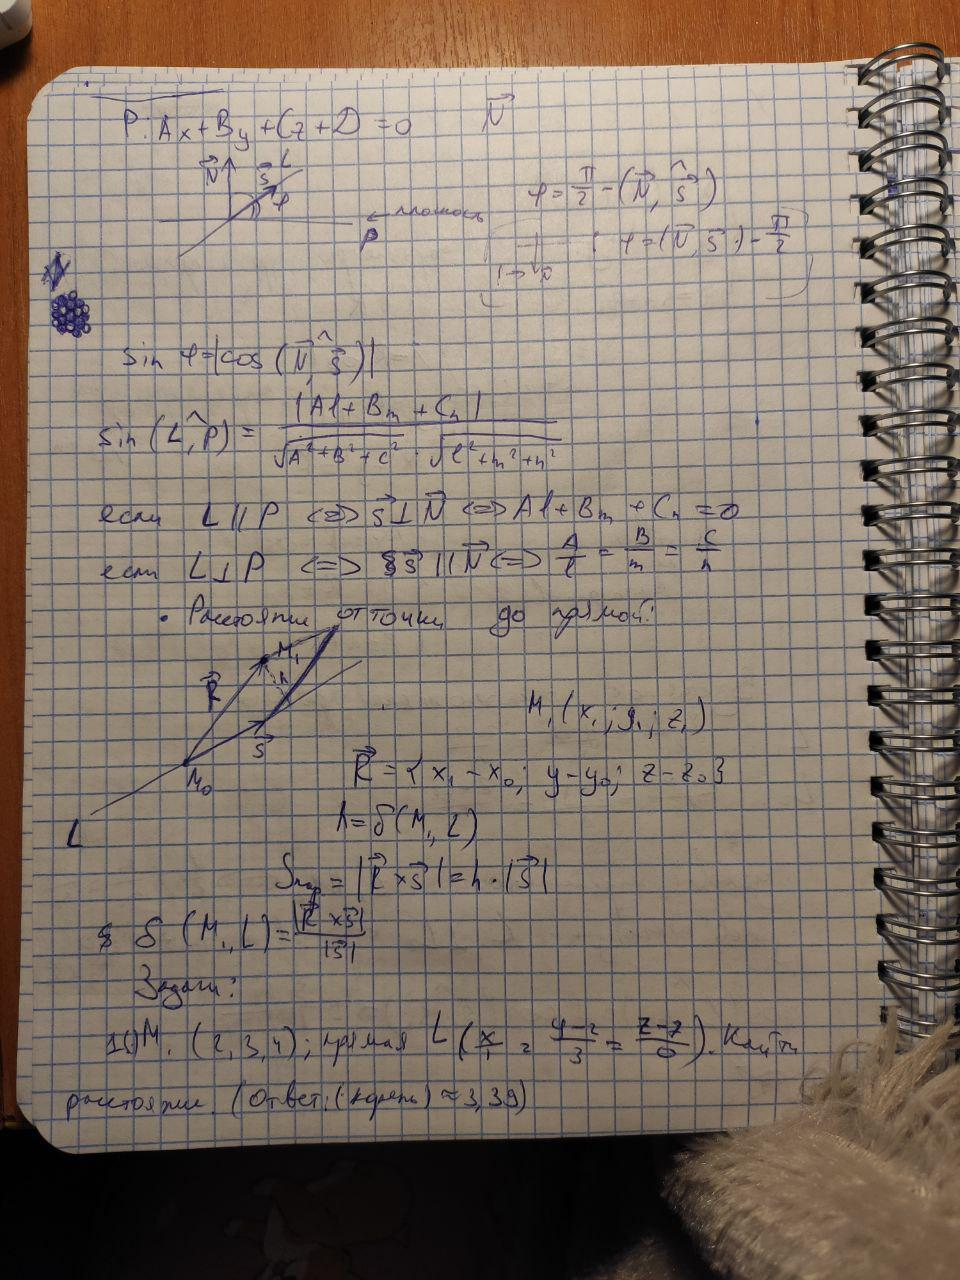 P: Ax + By + Cz + D = 0 N⃗
N⃗ S⃗ L φ
P
φ = π/2 - (N⃗, ^S⃗)
φ = (N⃗, S⃗) - π/2
sin φ = |cos (N⃗, ^S⃗)|
sin (L, ^P) = |Al + Bm + Cn| / √A²+B²+C² · √l²+m²+n²
если L || P <=> S⃗ ⊥ N⃗ <=> Al + Bm + Cn = 0
если L ⊥ P <=> S⃗ || N⃗ <=> A/l = B/m = C/n
• Расстояние от точки до прямой:
M₁
R⃗ h
S⃗
M₀
L
M₁ (x₁; y₁; z₁)
R⃗ = { x₁ - x₀; y - y₀; z - z₀ }
h = δ(M₁, L)
Sпар = |R⃗ × S⃗| = h · |S⃗|
δ (M₁, L) = |R⃗ × S⃗| / |S⃗|
Задачи:
(2, 3, 4); прямая L (x/1 = y-2/3 = z-7/0). Найти
расстояние. (Ответ: (корень) ≈ 3,39)